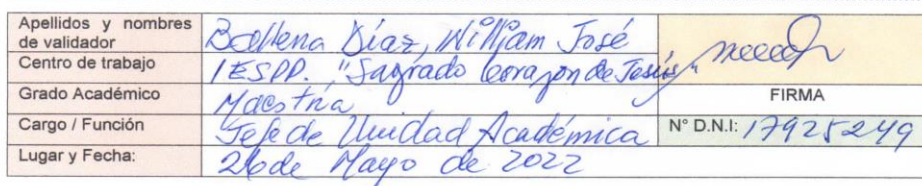 Apellidos y nombres de validador Ballena Díaz, William José
Centro de trabajo IESPP. "Sagrado Corazón de Jesús"
Grado Académico Maestría FIRMA
Cargo / Función Jefe de Unidad Académica N° D.N.I: 17925249
Lugar y Fecha: 26 de Mayo de 2022